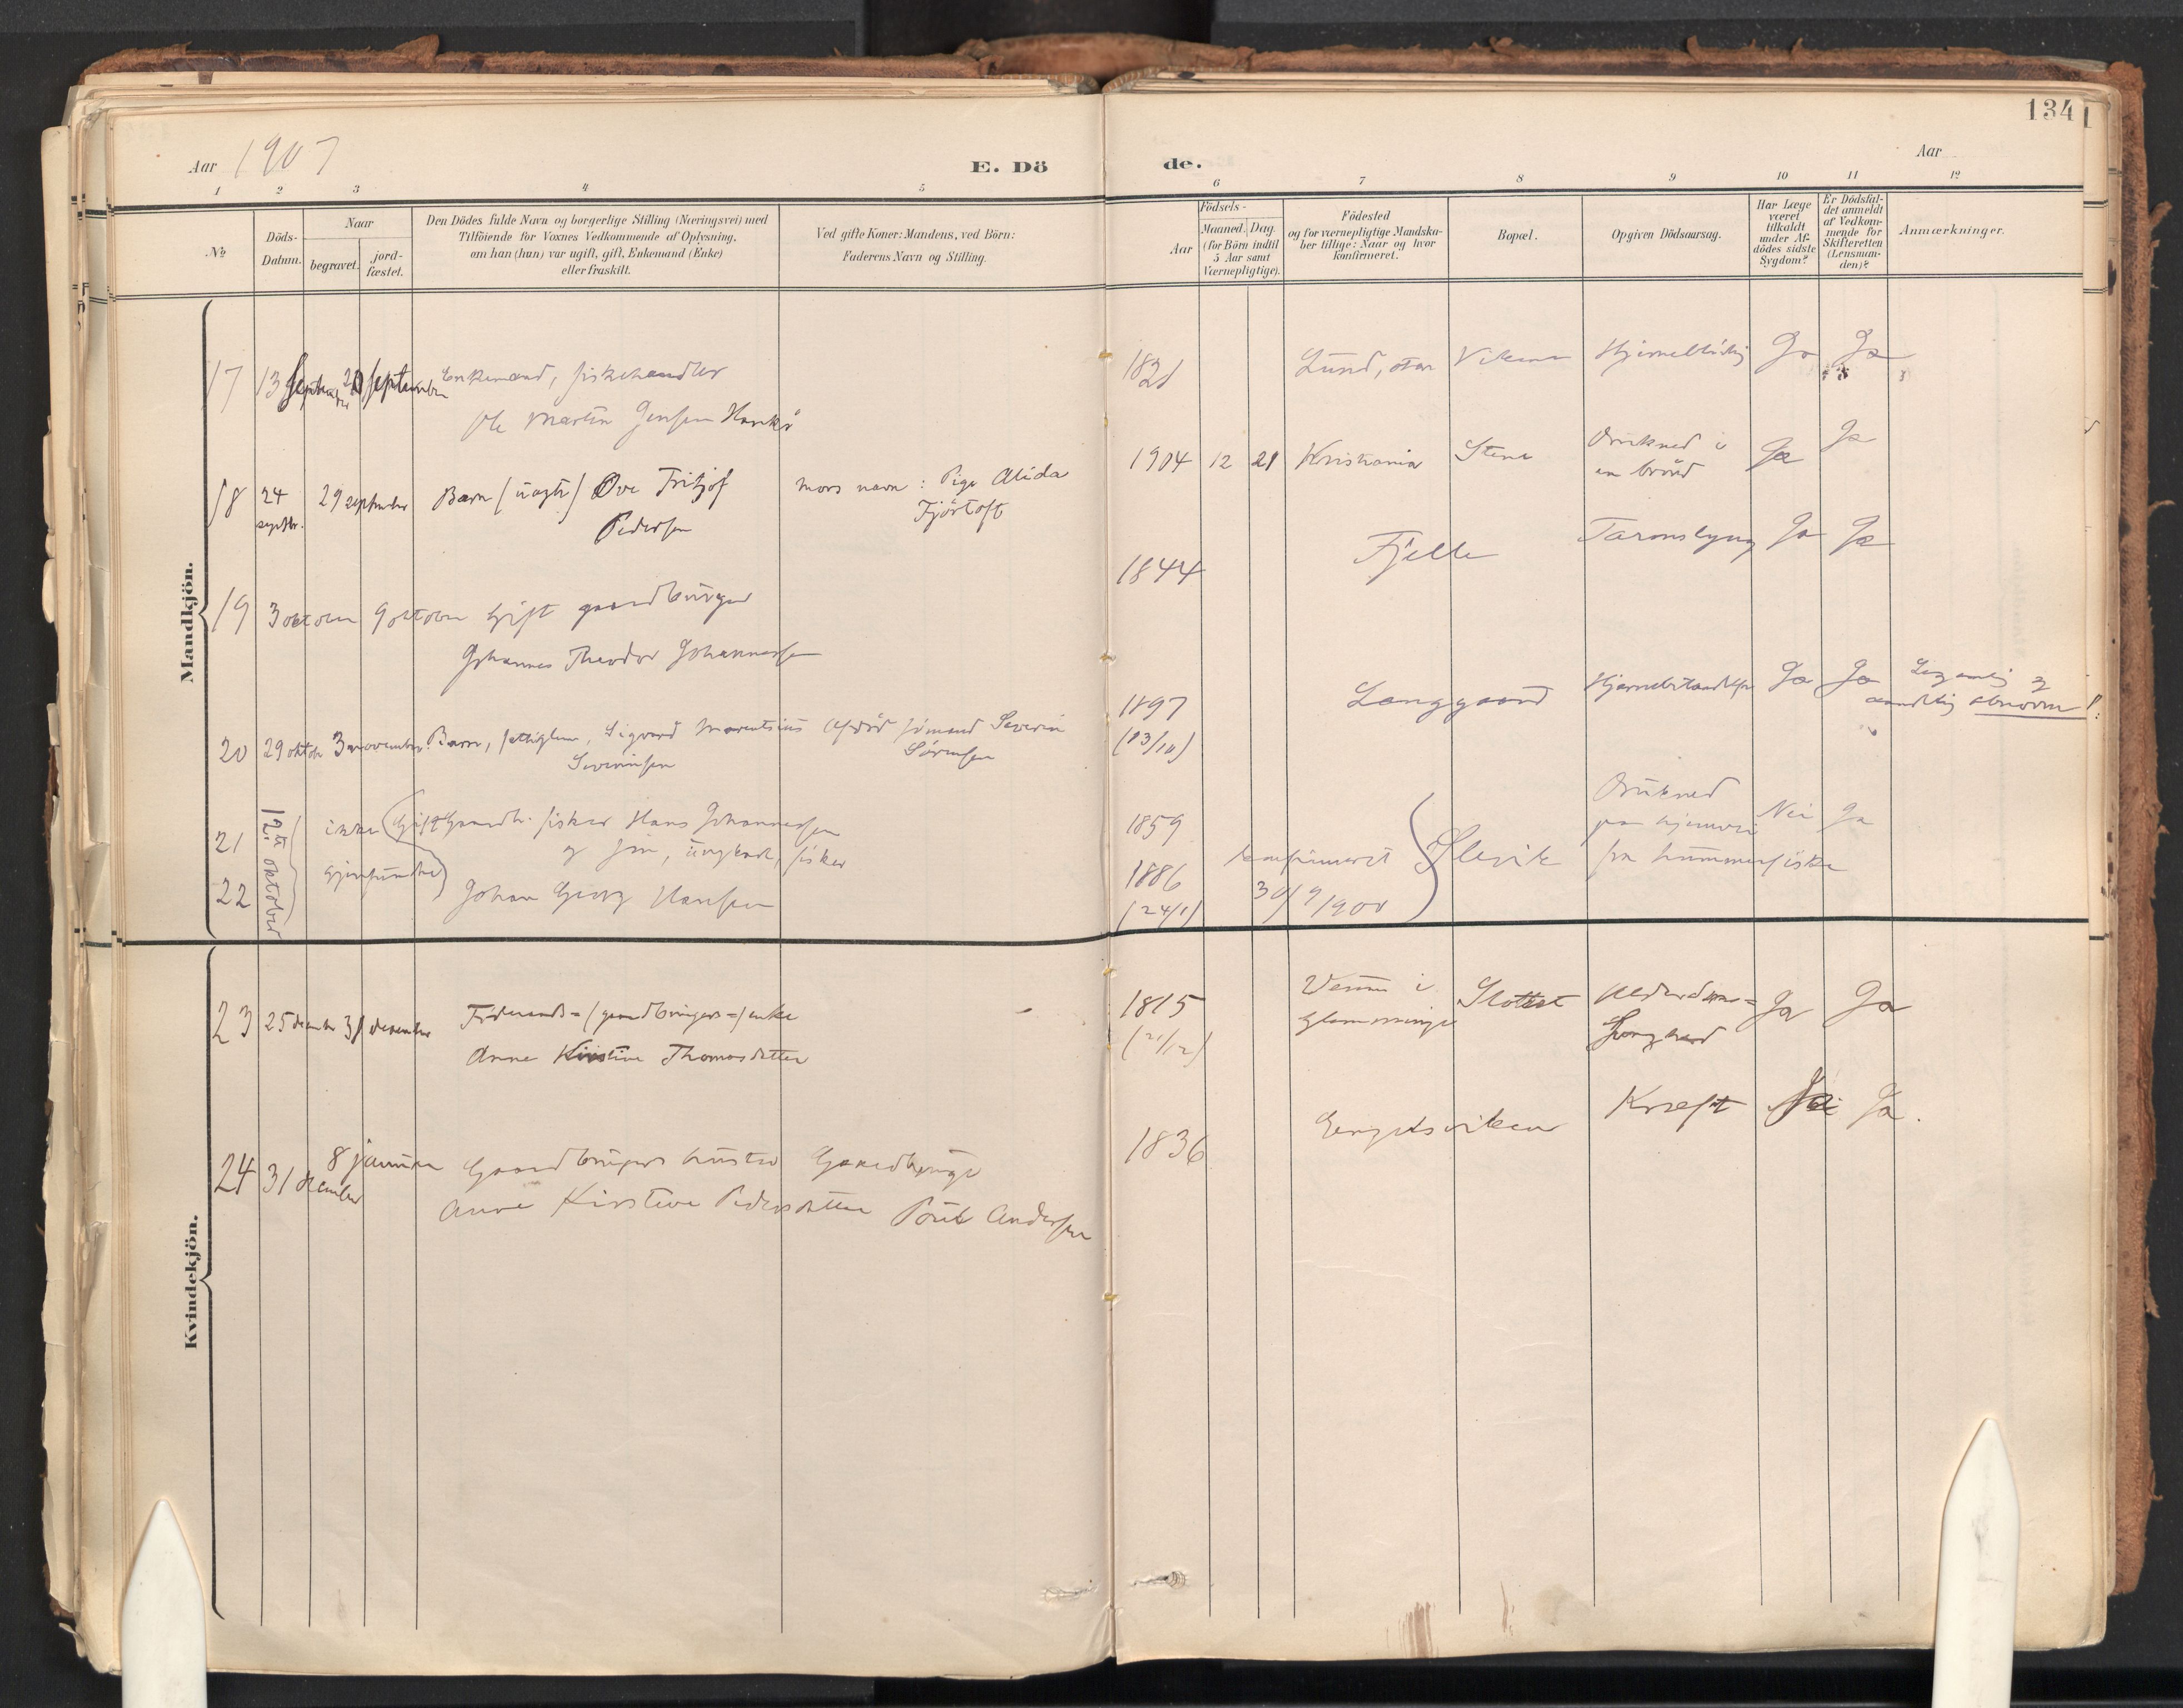 134
Aar 1907
E. Dö
de.
Aar
1 2 3 4 5 6 7 8 9 10 11 12
No
Döds-
Datum.
Naar
begravet.
jord-
fæstet.
Den Dödes fulde Navn og borgerlige Stilling (Næringsvei) med
Tilföiende for Voxnes Vedkommende af Oplysning,
om han (hun) var ugift, gift, Enkemand (Enke)
eller fraskilt.
Ved gifte Koner: Mandens, ved Börn:
Faderens Navn og Stilling.
Födsels-
Aar
Maaned. Dag.
(for Börn indtil
5 Aar samt
Værnepligtige).
Födested
og for værnepligtige Mandska-
ber tillige: Naar og hvor
konfirmeret.
Bopæl.
Opgiven Dödsaarsag.
Har Læge
været
tilkaldt
under Af-
dödes sidste
Sygdom?
Er Dödsfal-
det anmeldt
af Vedkom-
mende for
Skifteretten
(Lensman-
den)?
Anmærkninger.
Mandkjön.
17 13 september 20 september Enkemand, fiskehandler
Ole Martin Jensen Hankö
Lund, Viken Ja Ja
18 24 septbr. 29 september Barn (uægte) Ove Fritjof
Pedersen
Mors navn: Pige Alida
Fjörtoft
1904 12 21 Kristiania Stene Drukned i
en brönd
Ja Ja
19 3 oktober 9 oktober Gift gaardbruger
Johannes Theodor Johannessen
1844 Fjelle Ja Ja
20 29 oktobr 3 november Barn, fattiglem, Sigvard Marentsius
Severinsen
Afdöd sömand Severin
Sörensen
1897
(13/10)
Langgaard Ja Ja Legemlig og
aandelig abnorm!
21
22
12te oktober
ikke
gjenfundne
Gift Gaardbr. fisker Hans Johannessen
og sön, ungkarl, fisker
Johan Georg Hansen
1859
1886
(24/1)
konfirmeret
30/9/900
Slevik
Drukned
paa hjemvei
fra hummerfiske
Nei Ja
Kvindekjön.
23 25 december 31 december Föderaads=(gaardbrugers=)enke
Anne Kirstine Thomasdatter
1815
(21/12)
i
Glemminge
Slottet Alderdoms=
Ja Ja
24 31 december 8 januar Gaardbrugers hustru
Anne Kirstine Pedersdatter
Gaardbruger
Poul Andersen
1836 Engelsviken Kræft Nei Ja.